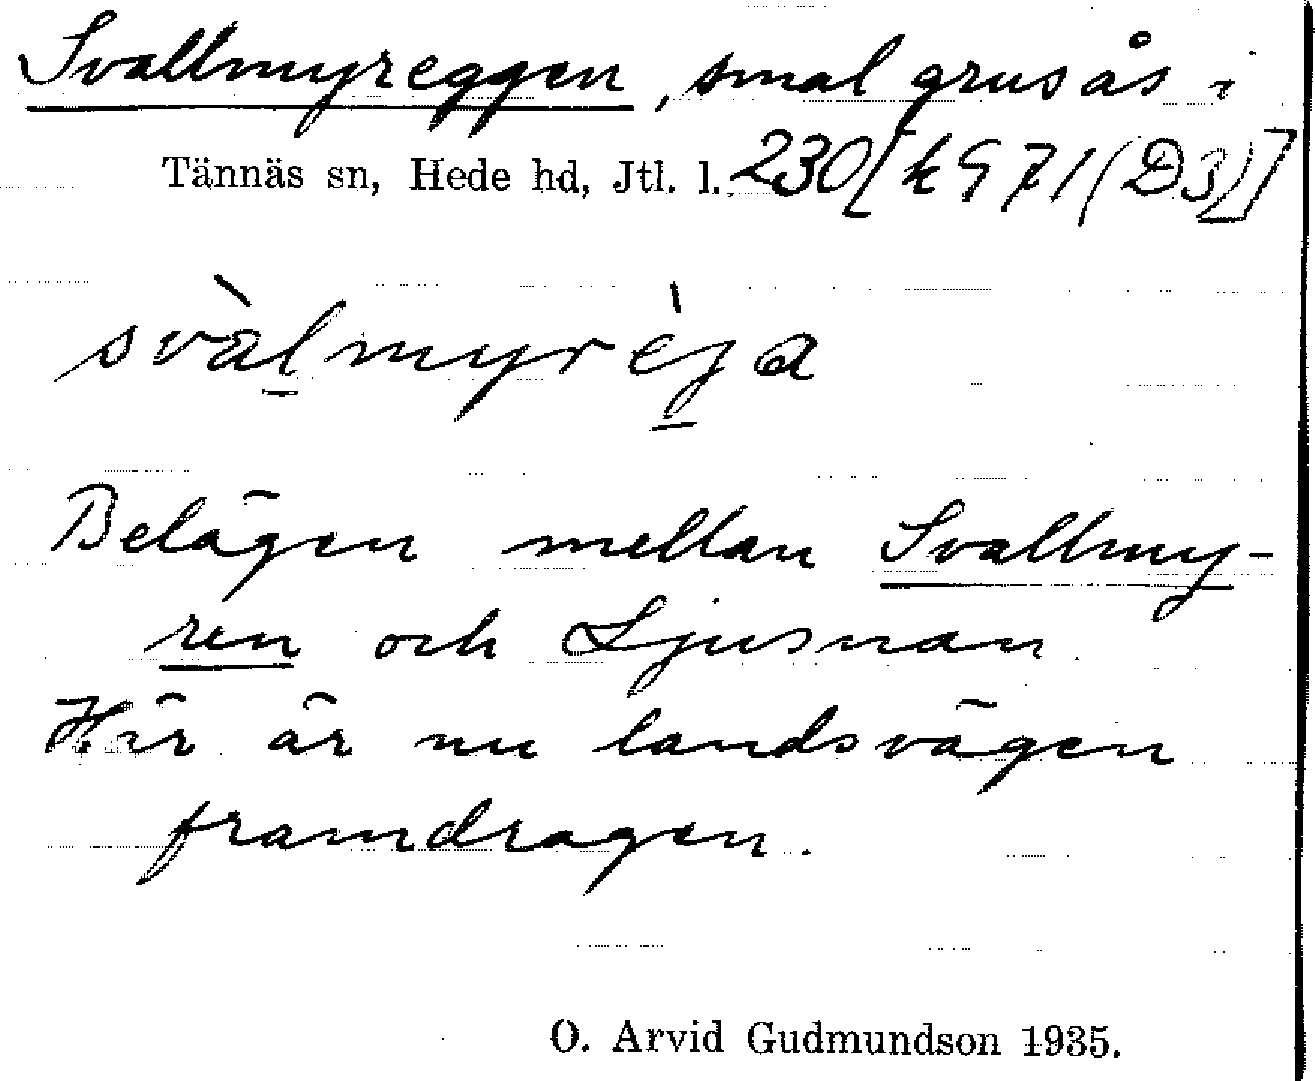 Svallmyreggen, smal grusås i
Tännäs sn, Hede hd, Jtl. l. 230[k971(D3)]
svàlmyrèja
Belägen mellan Svallmy-
ren och Ljusnan
Här är nu landsvägen
framdragen.
O. Arvid Gudmundson 1935.